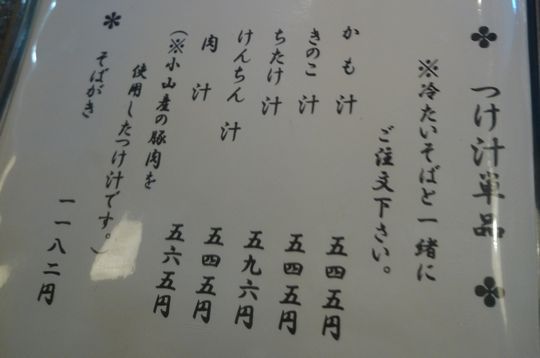 ✤ つけ汁単品 ✤
※冷たいそばと一緒に
ご注文下さい。
かも汁 五四五円
きのこ汁 五四五円
ちたけ汁 五九六円
けんちん汁 五四五円
肉汁 五六五円
(※小山産の豚肉を
使用したつけ汁です。)
＊そばがき 一一八二円